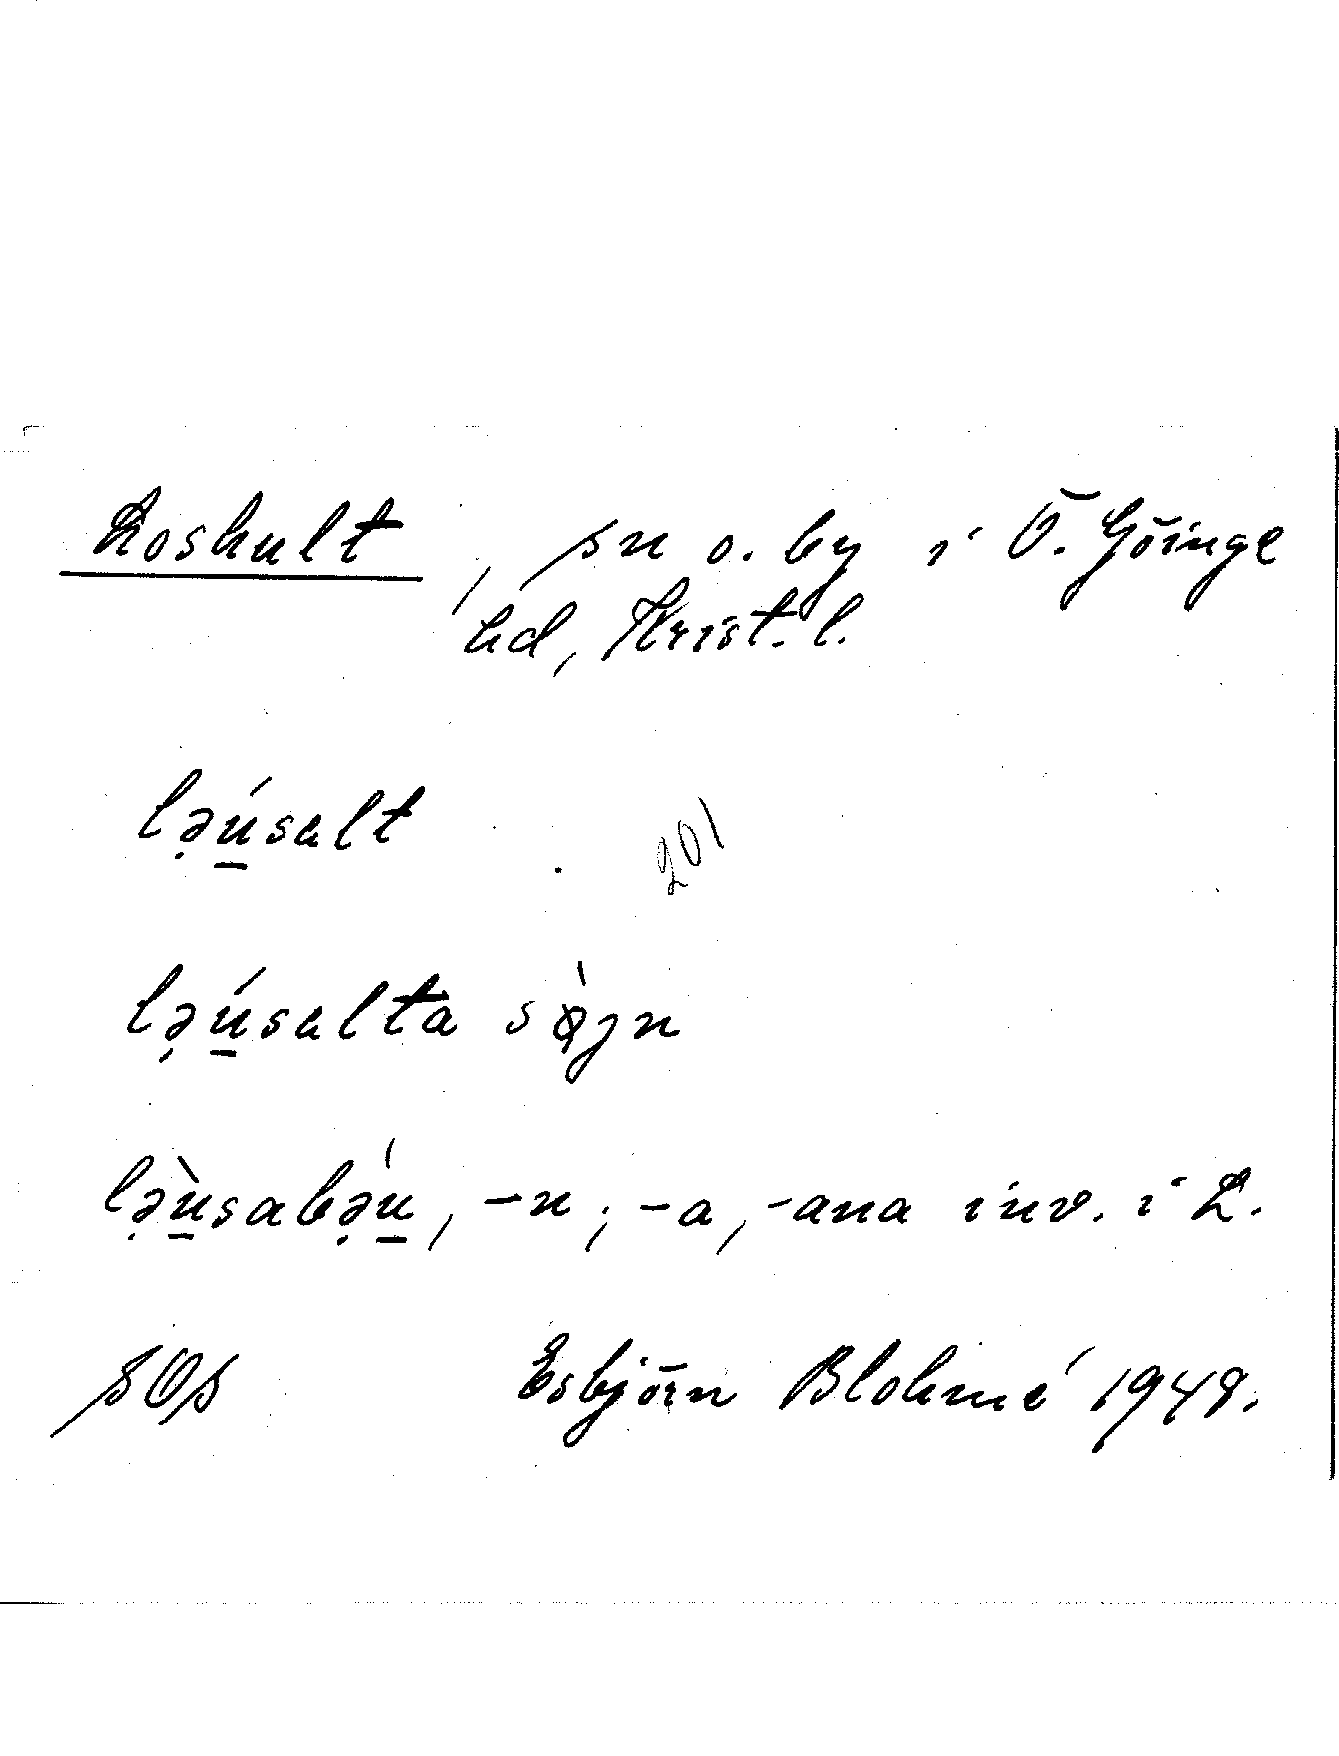 Loshult, sn o. by i Ö. Göinge
hd, Krist. l.
lə̣ú̲salt
201
lə̣ú̲salta sò̤jn
lə̣ù̲sabə̣ú̲, -n; -a, -ana inv. i L.
sOs Esbjörn Blohmé 1948.